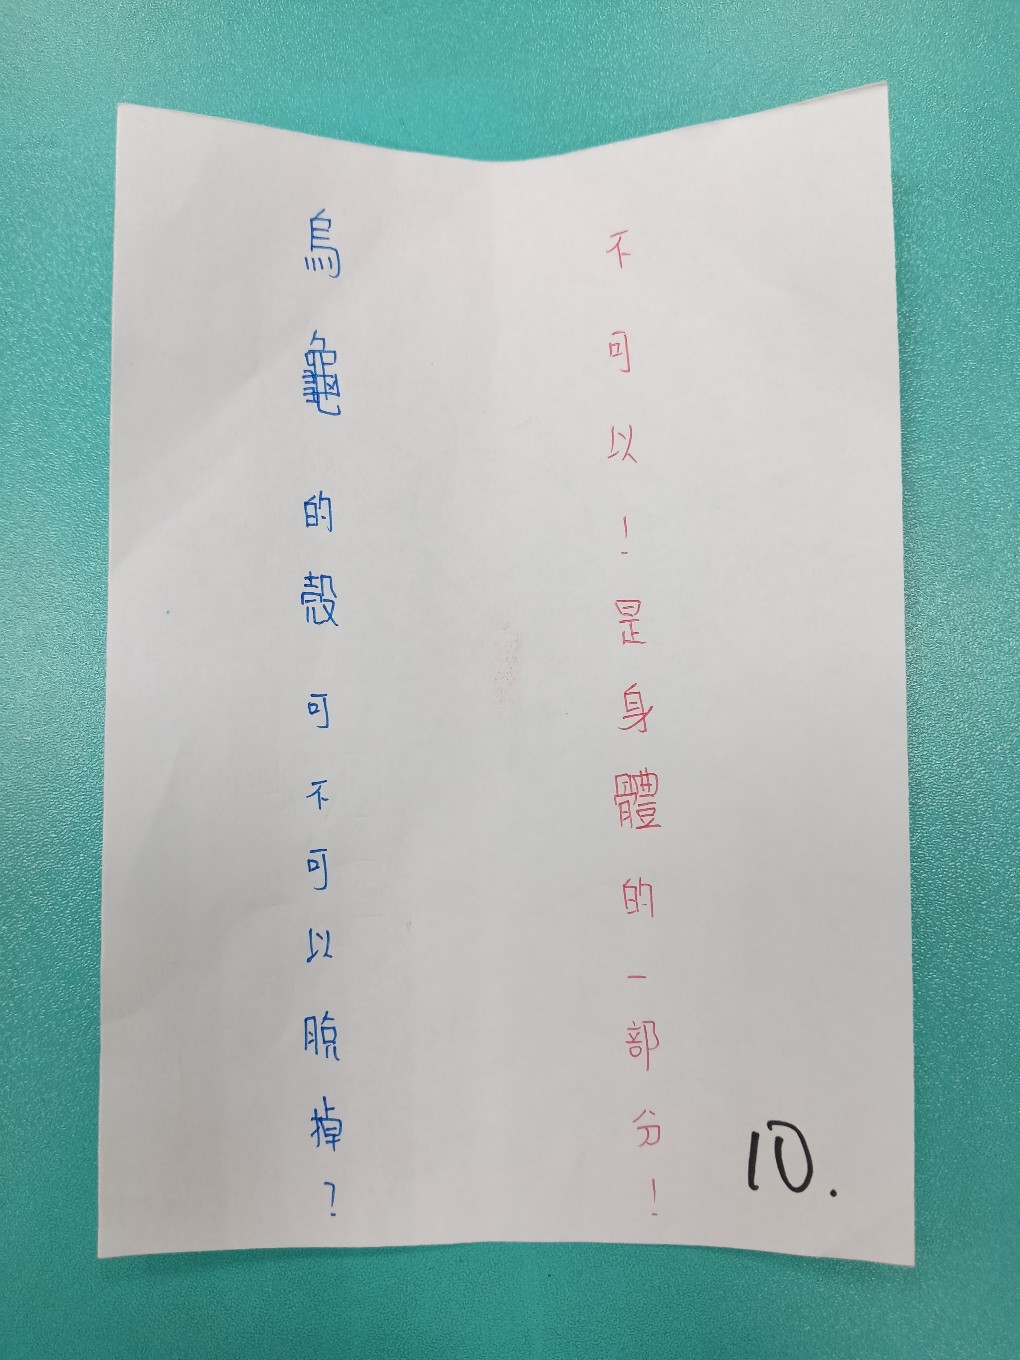 烏龜的殼可不可以脫掉?
不可以!是身體的一部分!
10.